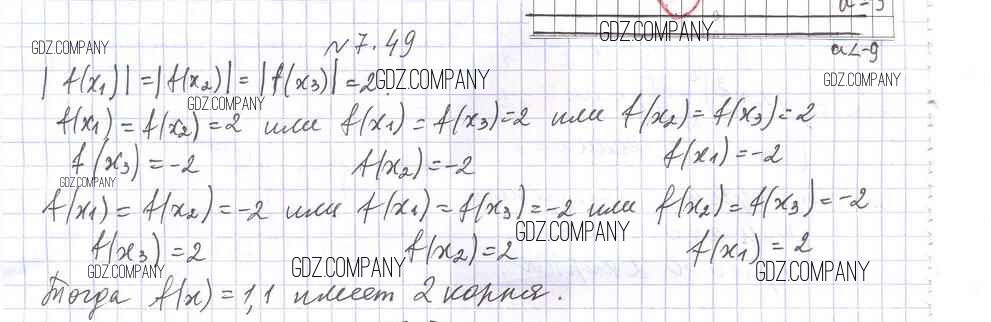 a=-9
GDZ.COMPANY
a<-9
№7.49
GDZ.COMPANY
GDZ.COMPANY
|f(x₁)|=|f(x₂)|=|f(x₃)|=2 GDZ.COMPANY
GDZ.COMPANY
f(x₁)=f(x₂)=2 или f(x₁)=f(x₃)=2 или f(x₂)=f(x₃)=2
f(x₃)=-2 f(x₂)=-2 f(x₁)=-2
GDZ.COMPANY
f(x₁)=f(x₂)=-2 или f(x₁)=f(x₃)=-2 или f(x₂)=f(x₃)=-2
GDZ.COMPANY
f(x₃)=2 f(x₂)=2 f(x₁)=2
GDZ.COMPANY GDZ.COMPANY GDZ.COMPANY
Тогда f(x)=1,1 имеет 2 корня.